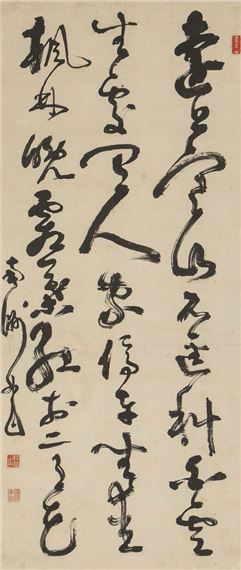 遠上寒山石逕斜白雲
生處有人家停車坐愛
楓林晚霜葉紅於二月花
南洲書